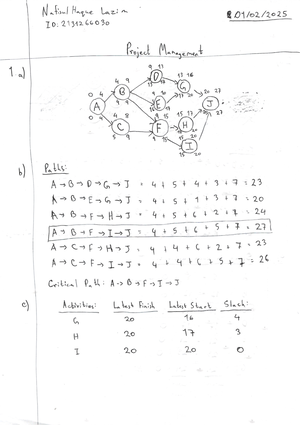 Nafisul Haque Lazim
ID: 2131266030
01/02/2025
Project Management
1 a)
A B C D E F G H I J
b) Paths:
A → B → D → G → J = 4 + 5 + 4 + 3 + 7 = 23
A → B → E → G → J = 4 + 5 + 1 + 3 + 7 = 20
A → B → F → H → J = 4 + 5 + 6 + 2 + 7 = 24
A → B → F → I → J = 4 + 5 + 6 + 5 + 7 = 27
A → C → F → H → J = 4 + 4 + 6 + 2 + 7 = 23
A → C → F → I → J = 4 + 4 + 6 + 5 + 7 = 26
Critical Path: A → B → F → I → J
c) Activities: Latest Finish Latest Start Slack:
G 20 16 4
H 20 17 3
I 20 20 0